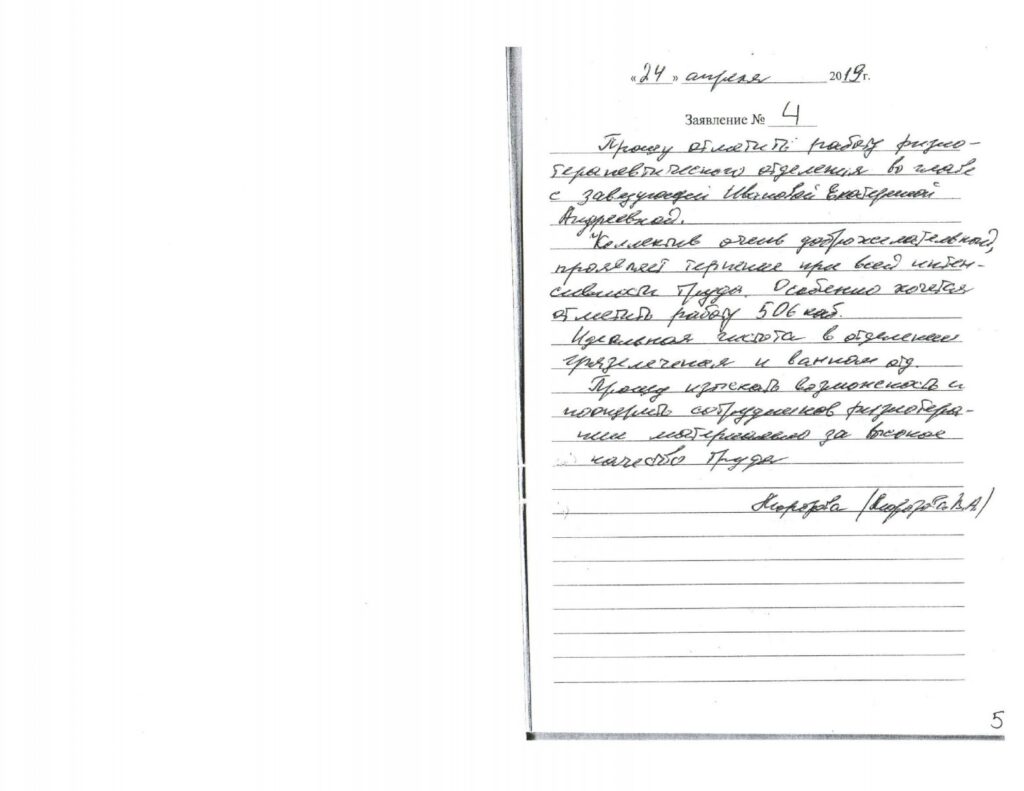 «24» апреля 2019г.
Заявление № 4
Прошу отметить работу физио-
терапевтического отделения во главе
с заведующей Ивановой Екатериной
Андреевной.
Коллектив очень доброжелательный,
проявляет терпение при всей интен-
сивности труда. Особенно хочется
отметить работу 506 каб.
Идеальная чистота в отделении
грязелечения и ванном отд.
Прошу изыскать возможность и
поощрить сотрудников физиотера-
пии материально за высокое
качество труда
Морозова (Морозова В.А)
5